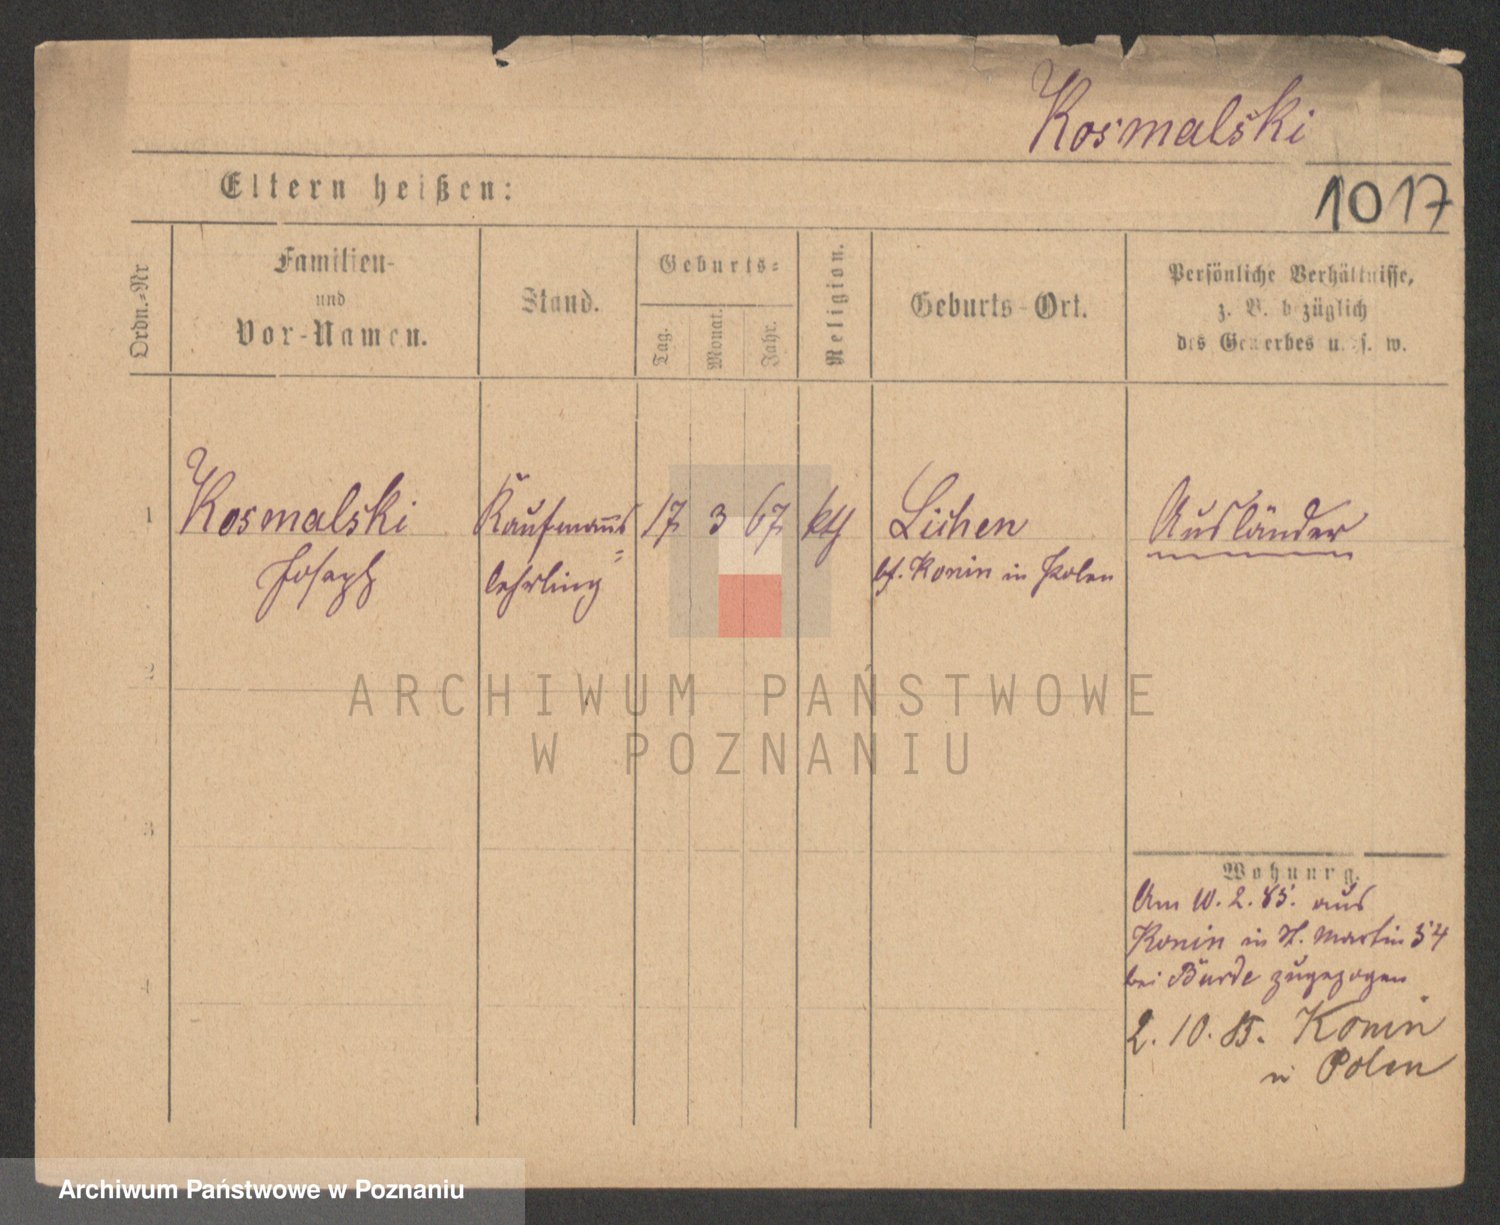 Kosmalski
Eltern heißen:
1017
Ordn.-Nr
Familien-
und
Vor-Namen.
Stand.
Geburts-
Tag.
Monat.
Jahr.
Religion.
Geburts-Ort.
Persönliche Verhältnisse,
z. B. bezüglich
des Gewerbes u. s. w.
1
Kosmalski
Joseph
Kaufmanns
lehrling
17
3
67
kth
Lichen
bf. Konin in Polen
Ausländer
ARCHIWUM PAŃSTWOWE
W POZNANIU
3
4
Wohnung.
Am 10. 2. 85. aus
Konin in St. Martin 54
bei Burde zugezogen
2. 10. 85. Konin
in Polen
Archiwum Państwowe w Poznaniu